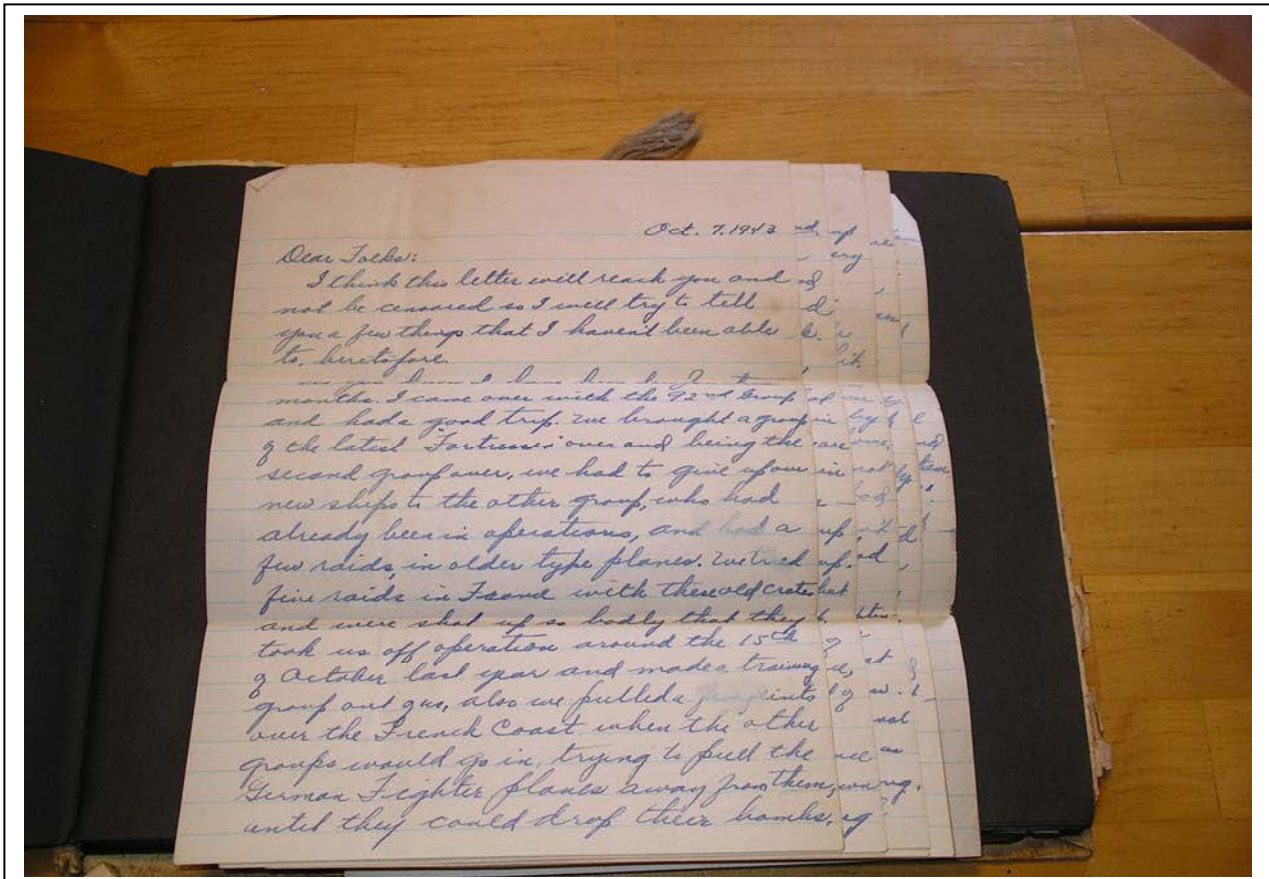 Oct. 7, 1943
Dear Folks:
I think this letter will reach you and
not be censored so I will try to tell
you a few things that I haven't been able
to, heretofore.
months. I came over with the 92nd Group
and had a good trip. We brought a group
of the latest "Fortresses" over and being the
second group over, we had to give up our
new ships to the other group, who had
already been in operations, and had a
few raids, in older type planes. We tried
five raids in France with these old crates
and were shot up so badly that they
took us off operation around the 15th
of October last year and made a training
group out of us, also we pulled a
over the French Coast when the other
groups would go in, trying to pull the
German Fighter planes away from them,
until they could drop their bombs.